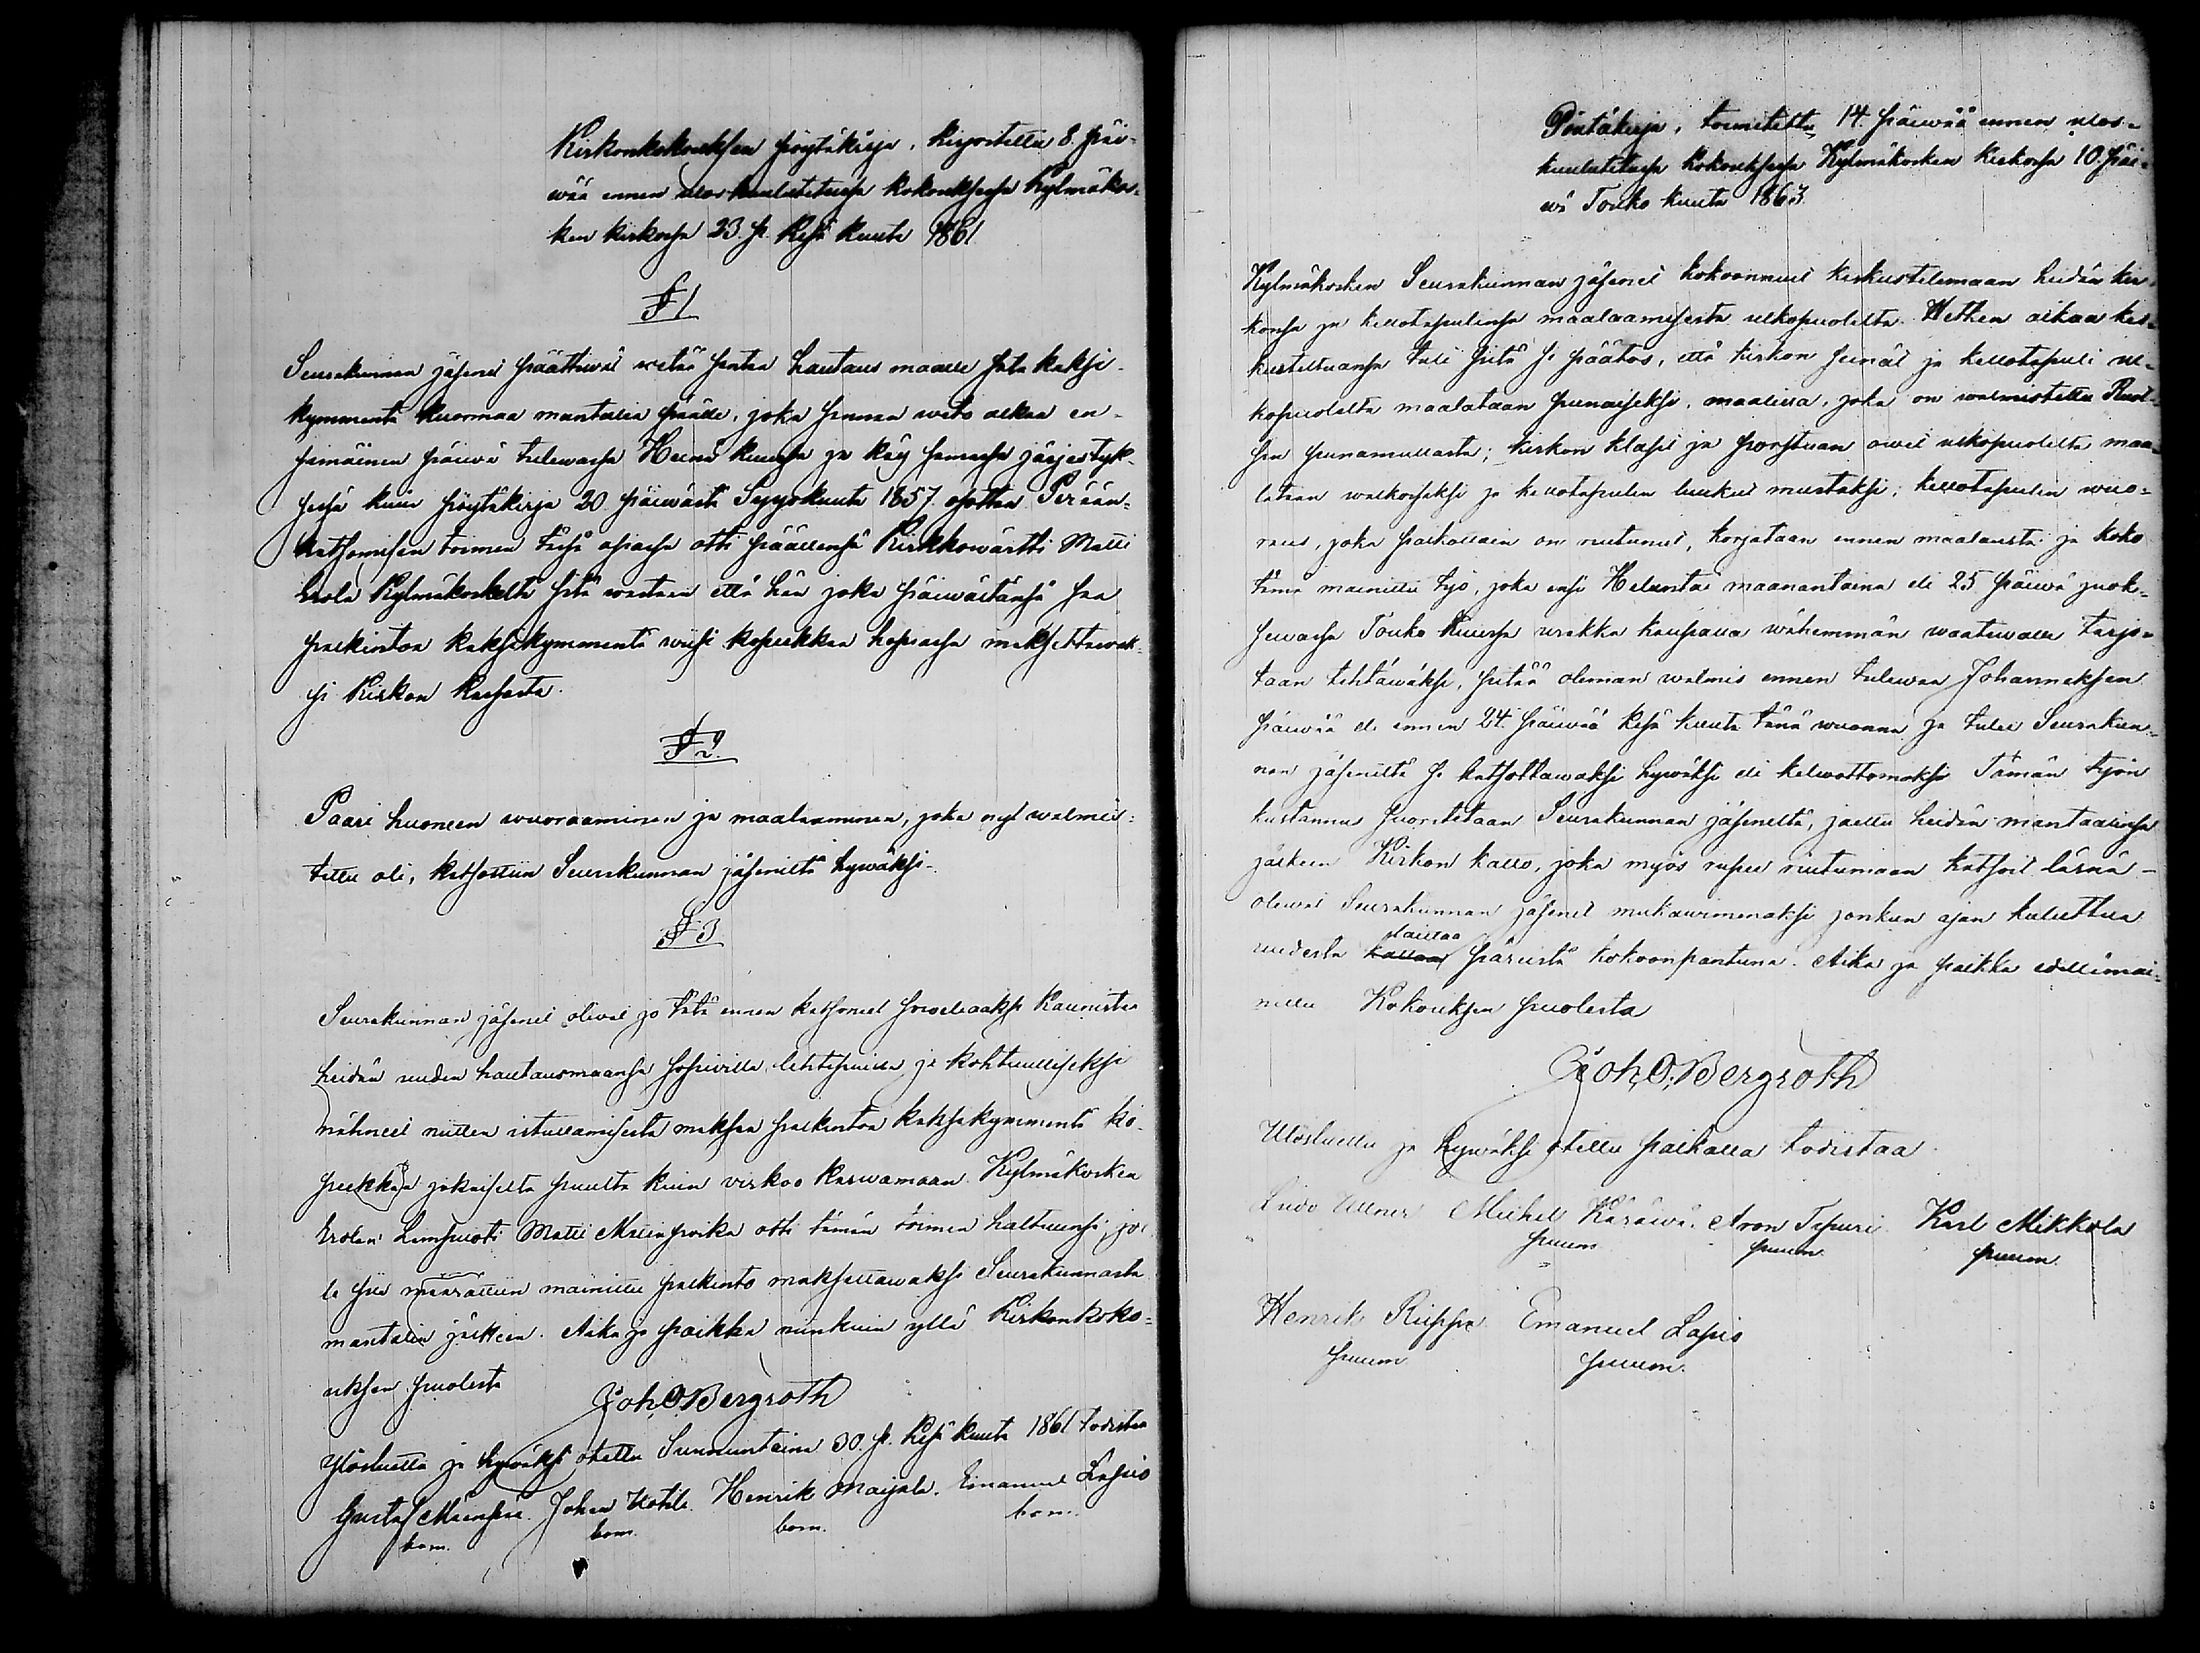 Kirkonkokouksen pöytäkirja, kirjoitettu 8. päi-
wää ennen uloskuulutetussa kokouksessa Kylmäkos-
ken kirkossa 23. p. Kesä kuuta 1861
§ 1
Seurakunnan jäsenet päättiwät wetää santaa hautaus maalle sata kaksi-
kymmentä kuormaa mantalia päälle, joka sannan weto alkaa en-
simäinen päiwä tulewassa Heinä kuussa ja käy samassa järjestyk-
sessä kuin pöytäkirja 20 päiwästä Syyskuuta 1857 osottaa Perään-
katsomisen toimen tässä asiassa otti päällensä Kirkkowärtti Matti
Erola Kylmäkoskelta sitä wastaan että hän joka päiwästänsä saa
palkintoa kaksikymmentä wiisi kopeekkaa hopiassa maksettawak-
si Kirkon kassasta.
§ 2.
Paari huoneen wuoraaminen ja maalaaminen, joka nyt walmis-
tettu oli, katsottiin Seurakunnan jäseniltä hywäksi.
§ 3
Seurakunnan jäsenet oliwat jo tätä ennen katsoneet soweliaaksi kaunistaa
heidän uuden hautausmaansa sopiwilla lehtipuilla ja kohtuulliseksi
nähneet niitten istuttamisesta maksaa palkintoa kaksikymmentä ko-
peekkaa jokaiselta puulta kuin virkoo kaswamaan. Kylmäkosken
Erolan Lampuoti Matti Matinpoika otti tämän toimen haltuunsa, jol-
le siis määrättiin mainittu palkinto maksettawaksi Seurakunnasta
mantalin jälkeen. Aika ja paikka niinkuin yllä Kirkonkoko-
uksen puolesta
Joh. O. Bergroth
Ylösluettu ja hywäksi otettu Sunnuntaina 30. p. Kesä kuuta 1861 todistaa
Gustaf Johan Uotila. Henrik Maijala. Emanuel Lapio
bom. bom. bom. bom.
Pöutäkirja, toimitettu 14. päiwää ennen ulos-
kuulutetussa kokouksessa Kylmäkosken kirkossa 10. päi-
wä Touko kuuta 1863.
Kylmäkosken Seurakunnan jäsenet kokoonnuit keskustelemaan heidän kir-
konsa ja kellotapulinsa maalaamisesta ulkopuolelta. Hetken aikaa kes-
kusteltuansa tuli siitä se päätös, että kirkon seinät ja kellotapuli ul-
kopuolelta maalataan punaiseksi, maalilla, joka on walmistettu Ruot-
sin punamullasta; kirkon klasit ja porstuan owet ulkopuolelta maa-
lataan walkoiseksi ja kellotapulin luukut mustaksi; kellotapulin wuo-
raus, joka paikottain on ruttunut, korjataan ennen maalausta ja koko
tämä mainittu työ, joka ensi Helunta maanantaina eli 25 päiwä juok-
sewassa Touko Kuussa urakka kaupalla wähemmän waatiwalle tarjo-
taan tehtäwäksi, pitää oleman walmis ennen tulewaa Johanneksen
päiwää eli ennen 24 päiwää Kesä kuuta tänä wuonna ja tulee Seurakun-
nan jäseniltä se katsottawaksi hywäksi eli kelwottomaksi Tämän työn
kustannus suoritetaan Seurakunnan jäseneltä, jaettu heidän mantaalinsa
jälkeen Kirkon katto, joka myös rupee ruttumaan katsoit läsnä-
olewat Seurakunnan jäsenet mukawimmaksi jonkun ajan kuluttua
uudesta kattaa päreistä kokoonpantuna. Aika ja paikka edellämai-
nittu Kokouksen puolesta
Joh. O. Bergroth
Ulosluettu ja hywäksi otettu paikalla todistaa
Ullner Michel Käräwä. Aron Tapuri. Karl Mikkola
puum. puum. puum.
Henrik Emanuel Lapio
puum puum.